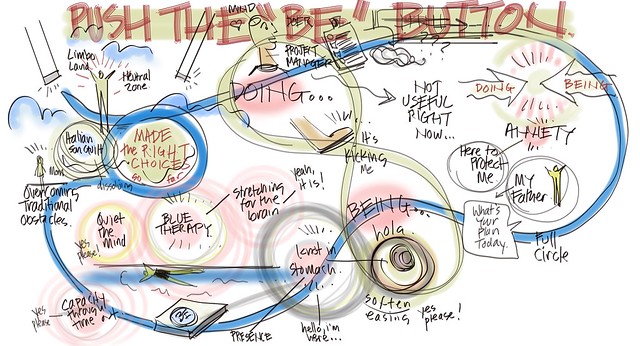 PUSH THE "BE" BUTTON.
MIND
DOER
PROJECT
MANAGER
Limbo
Land
Neutral
Zone.
DOING...
NOT
USEFUL
RIGHT
NOW...
DOING
BEING
ANXIETY
Here to
Protect
Me
MY
Father
What's
your
plan
today.
Full
Circle
Italian
Son Guilt
Mom
MADE
the RIGHT
CHOICES
so far
dissolving
Overcoming
Traditional
Obstacles.
It's
KICKING
ME
Stretching
for the
brain
yeah,
it is!
Quiet
the
Mind
yes
please!
BLUE
THERAPY.
BEING...
hola.
knot in
stomach
soften
easing
yes
please!
CAPACITY
through
time out.
yes
please
PRESENCE
hello, I'm
here...